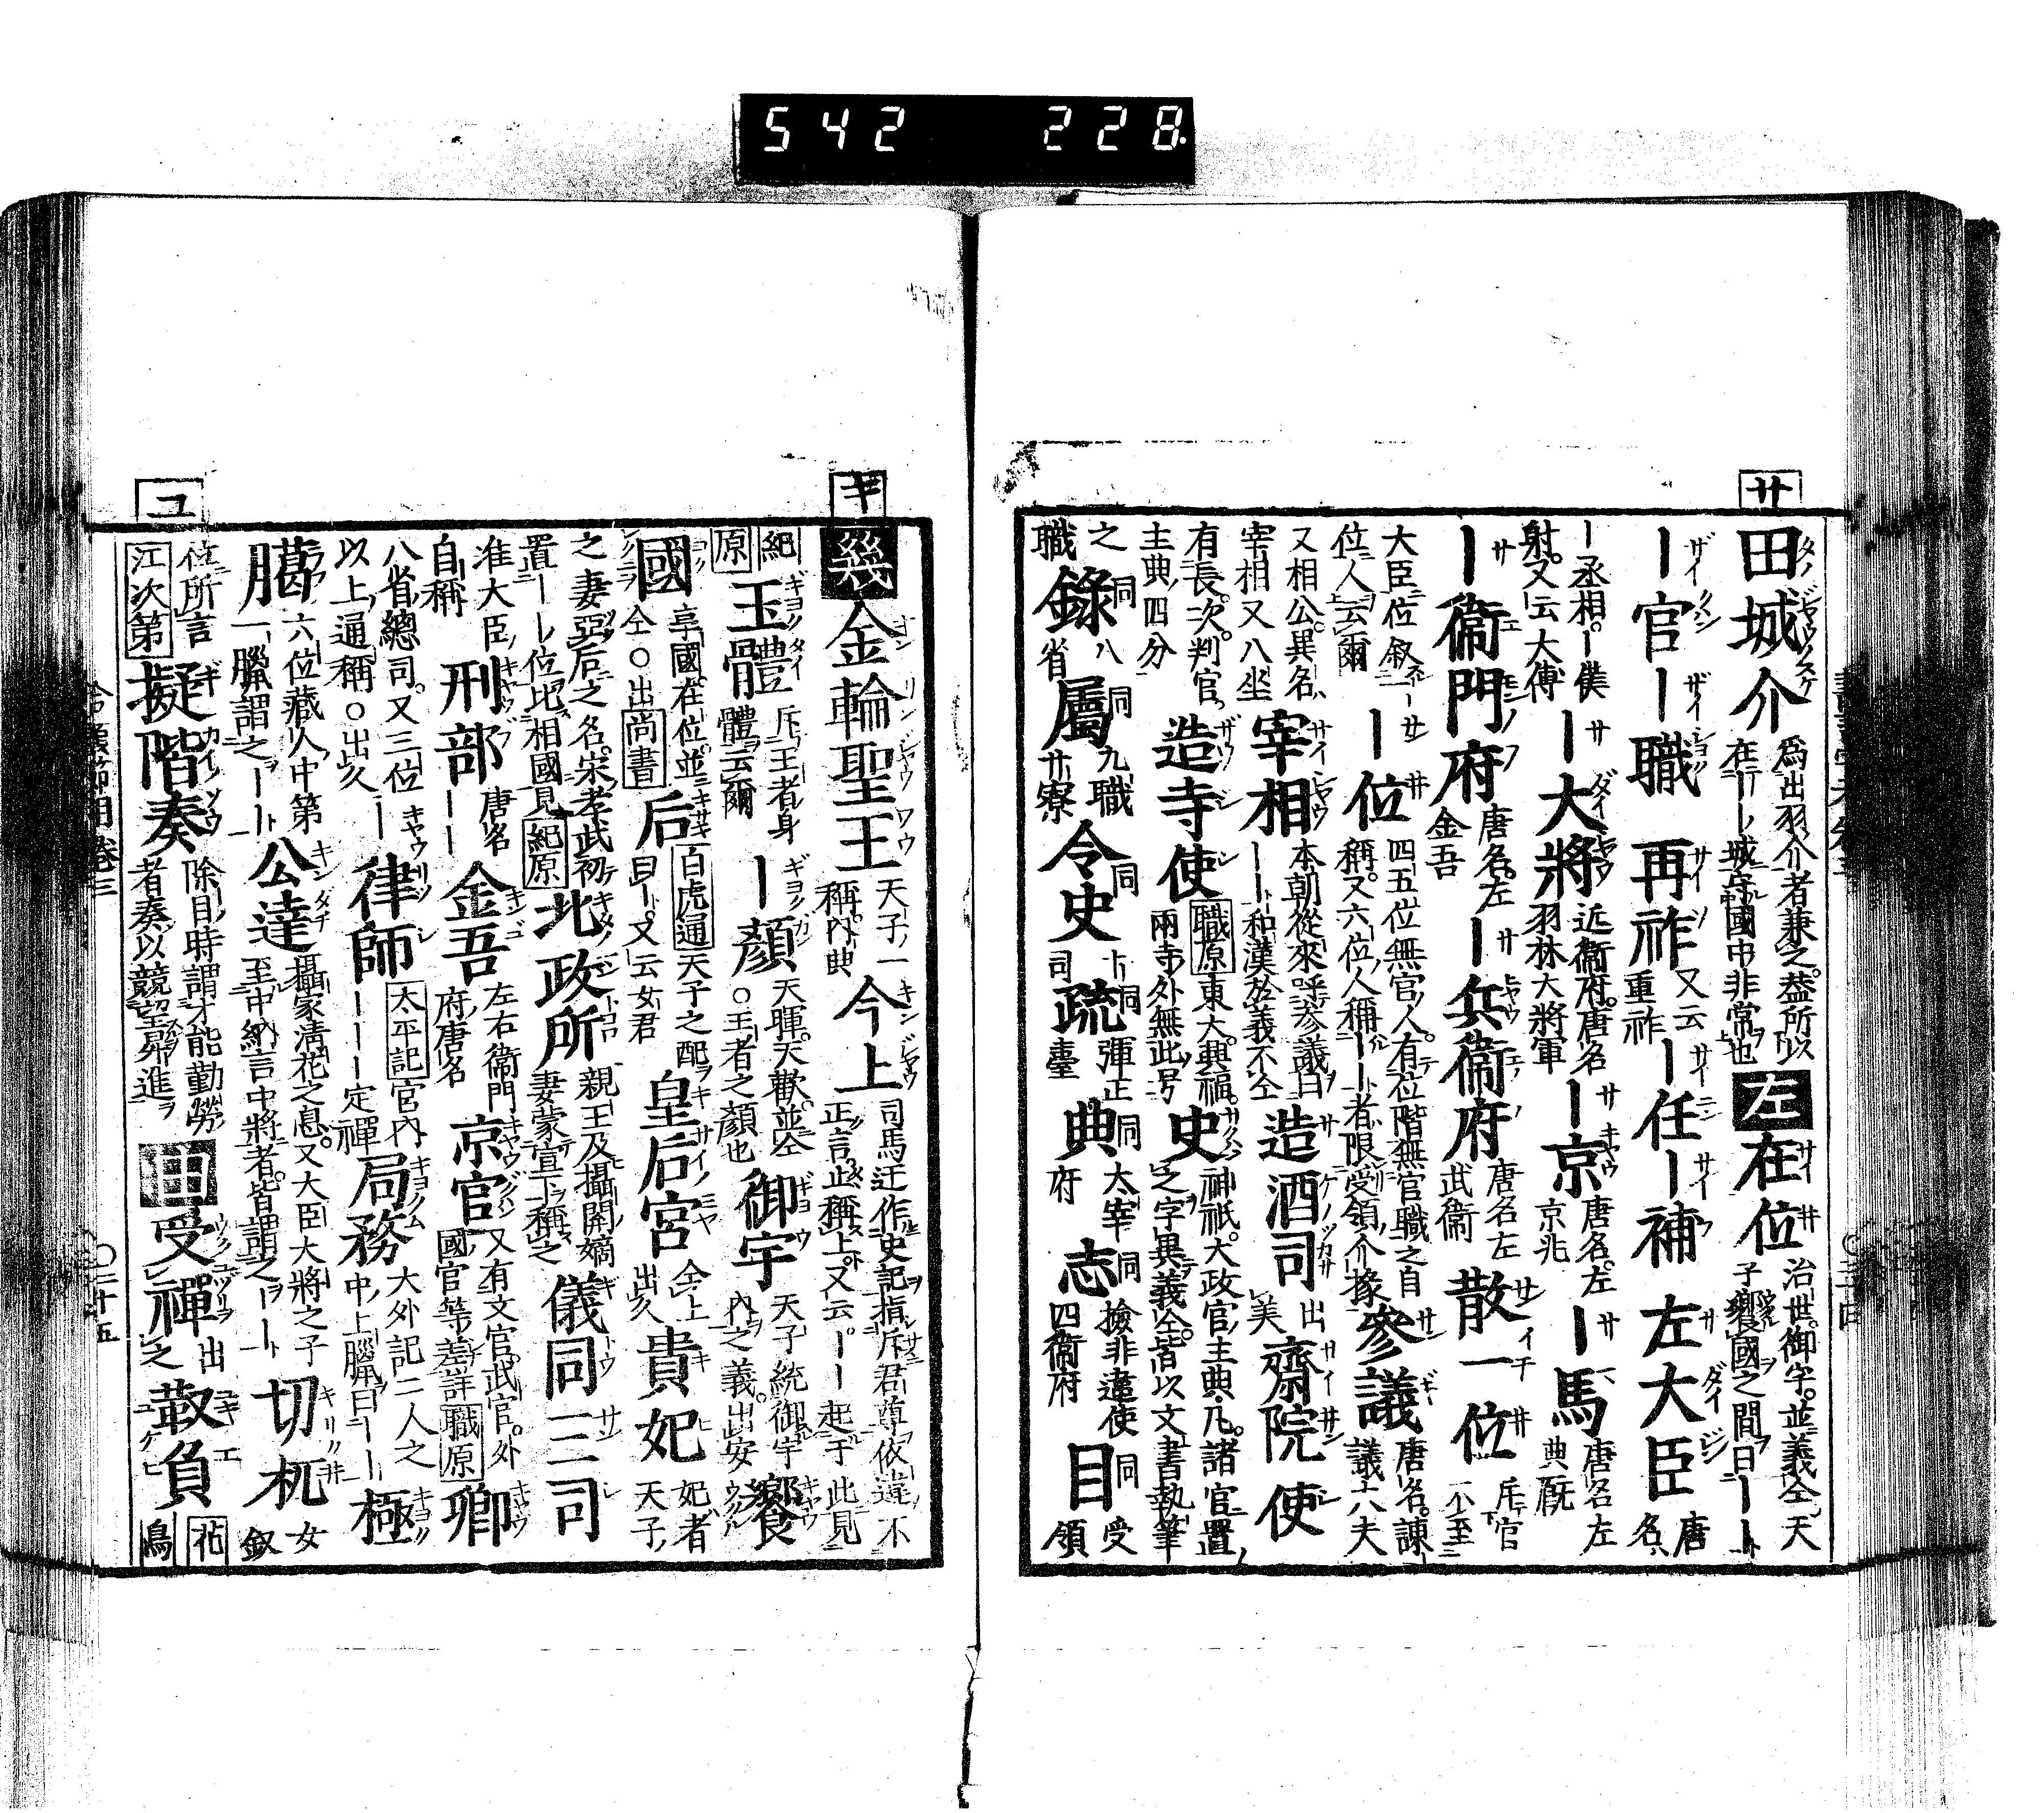 542 228
サ
田城介 爲出羽介者兼之。葢所以在ーー城守國中非常也 左 在位 治世。御宇。並義仝天子饗國之間曰ーー
ー官 ー職 再祚 又云重祚 ー任 ー補 左大臣 唐名
ー丞相。ー僕射。又云大傅 ー大將 近衞府。唐名羽林大將軍 ー京 唐名。左京兆 ー馬 唐名左典厩
ー衞門府 唐名。左金吾 ー兵衞府 唐名左武衞 散一位 斥官不至
大臣位叙一位人云爾 ー位 四五位無官人。有位階無官職之自稱。又六位人稱ーー者限受領介掾 參議 唐名。諫議大夫
又相公。異名宰相又八坐 宰相 本朝從來呼參議曰ーー和漢於義不仝 造酒司 出美 齋院使
有長。次。判官。主典ノ四分 造寺使 職原 東大。興福。兩寺外無此号 史 神祇。大政官ノ主典。凡諸官置
之職 錄 同 八省 屬 同 九職廿寮 令史 同 司 疏 同 彈正臺 典 同 太宰府 志 同 撿非違使四衞府 目 同 受領
之字異義仝。皆以文書執筆
キ
幾 金輪聖王 天子ノ一稱。内典 今上 司馬迁作史記指斥君尊依違不正言。此稱上。又云。ーー起于此見
紀原 玉體 斥王者身體云爾 ー顏 天暉。天歡。並仝○王者之顏也 御宇 天子統御宇内之義。出安 饗
國 享國。在位。並仝○出尚書 后 百虎通 天子之配曰ー。又云女君 皇后宮 仝上出乆 貴妃 妃者天子ノ
之妻亞后之名。宋孝武初置ーー位比相國見紀原 北政所 親王及攝関嫡妻蒙宣下稱之 儀同三司
准大臣ノ自稱 刑部 唐名ーー 金吾 左右衞門府ノ唐名 京官 又有文官。武官。外國官等差詳職原 卿
八省總司。又三位以上通稱。○出乆 ー律師 太平記 官内ーーー定禪 局務 大外記二人之中上臈曰ーー ー極
臈 六位藏人中第一臈謂之ーー 公達 攝家淸花之息。又大臣大將之子至中納言中將者。皆謂之ーー 切杌 女叙
位所言江次第 擬階奏 除目時謂才能勤勞者奏以競望昇進 由 受禪 出之 靫負 祐鳥
ユ